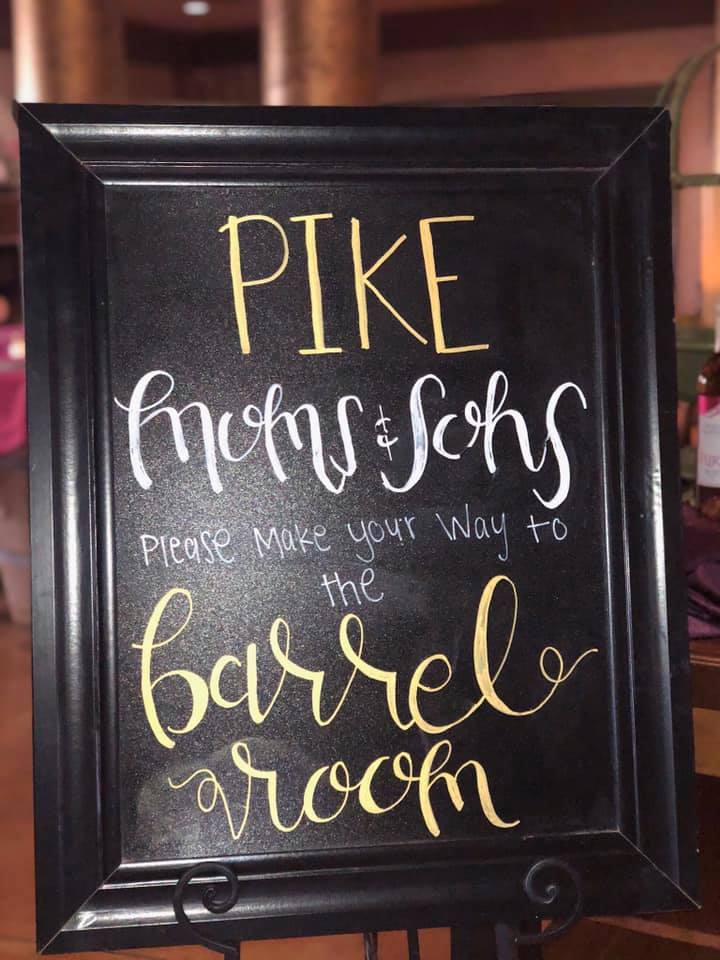 PIKE
moms & sons
Please Make your Way to
the
barrel
room